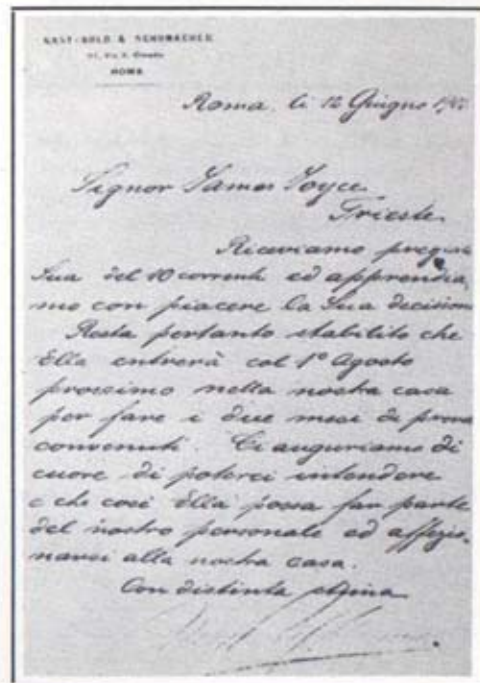 NAST-KOLB & SCHUMACHER
ROMA
Roma, li 12 Giugno
Signor James Joyce
Trieste
Riceviamo pregiata
Sua del 10 corrente ed apprendia-
mo con piacere la Sua decisione
Resta pertanto stabilito che
Ella entrerà col 1º Agosto
prossimo nella nostra casa
per fare i due mesi di prova
convenuti. Ci auguriamo di
cuore di poterci intendere
e che così Ella possa far parte
del nostro personale ed affezio-
narsi alla nostra casa.
Con distinta stima